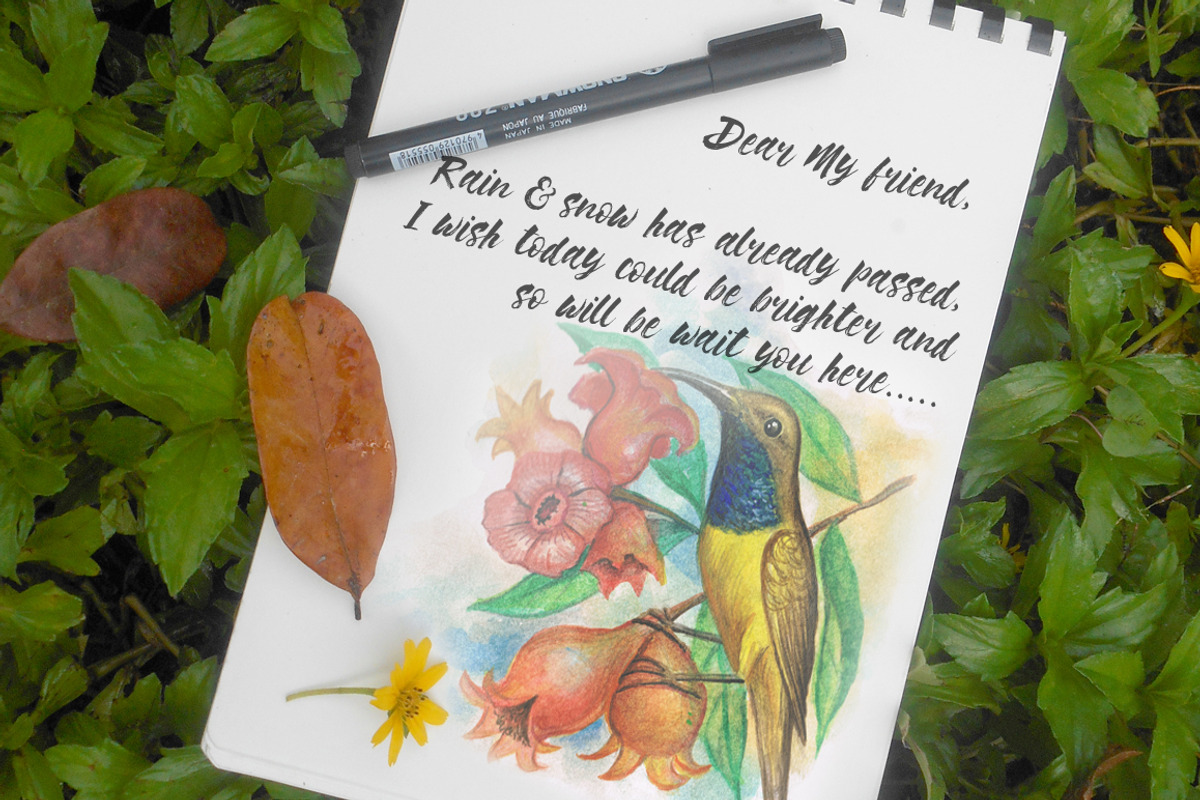 SNOWMAN® 700
FABRIQUE AU JAPON
MADE IN JAPAN
4970129055518
Dear My friend,
Rain & snow has already passed,
I wish today could be brighter and
so will be wait you here.....